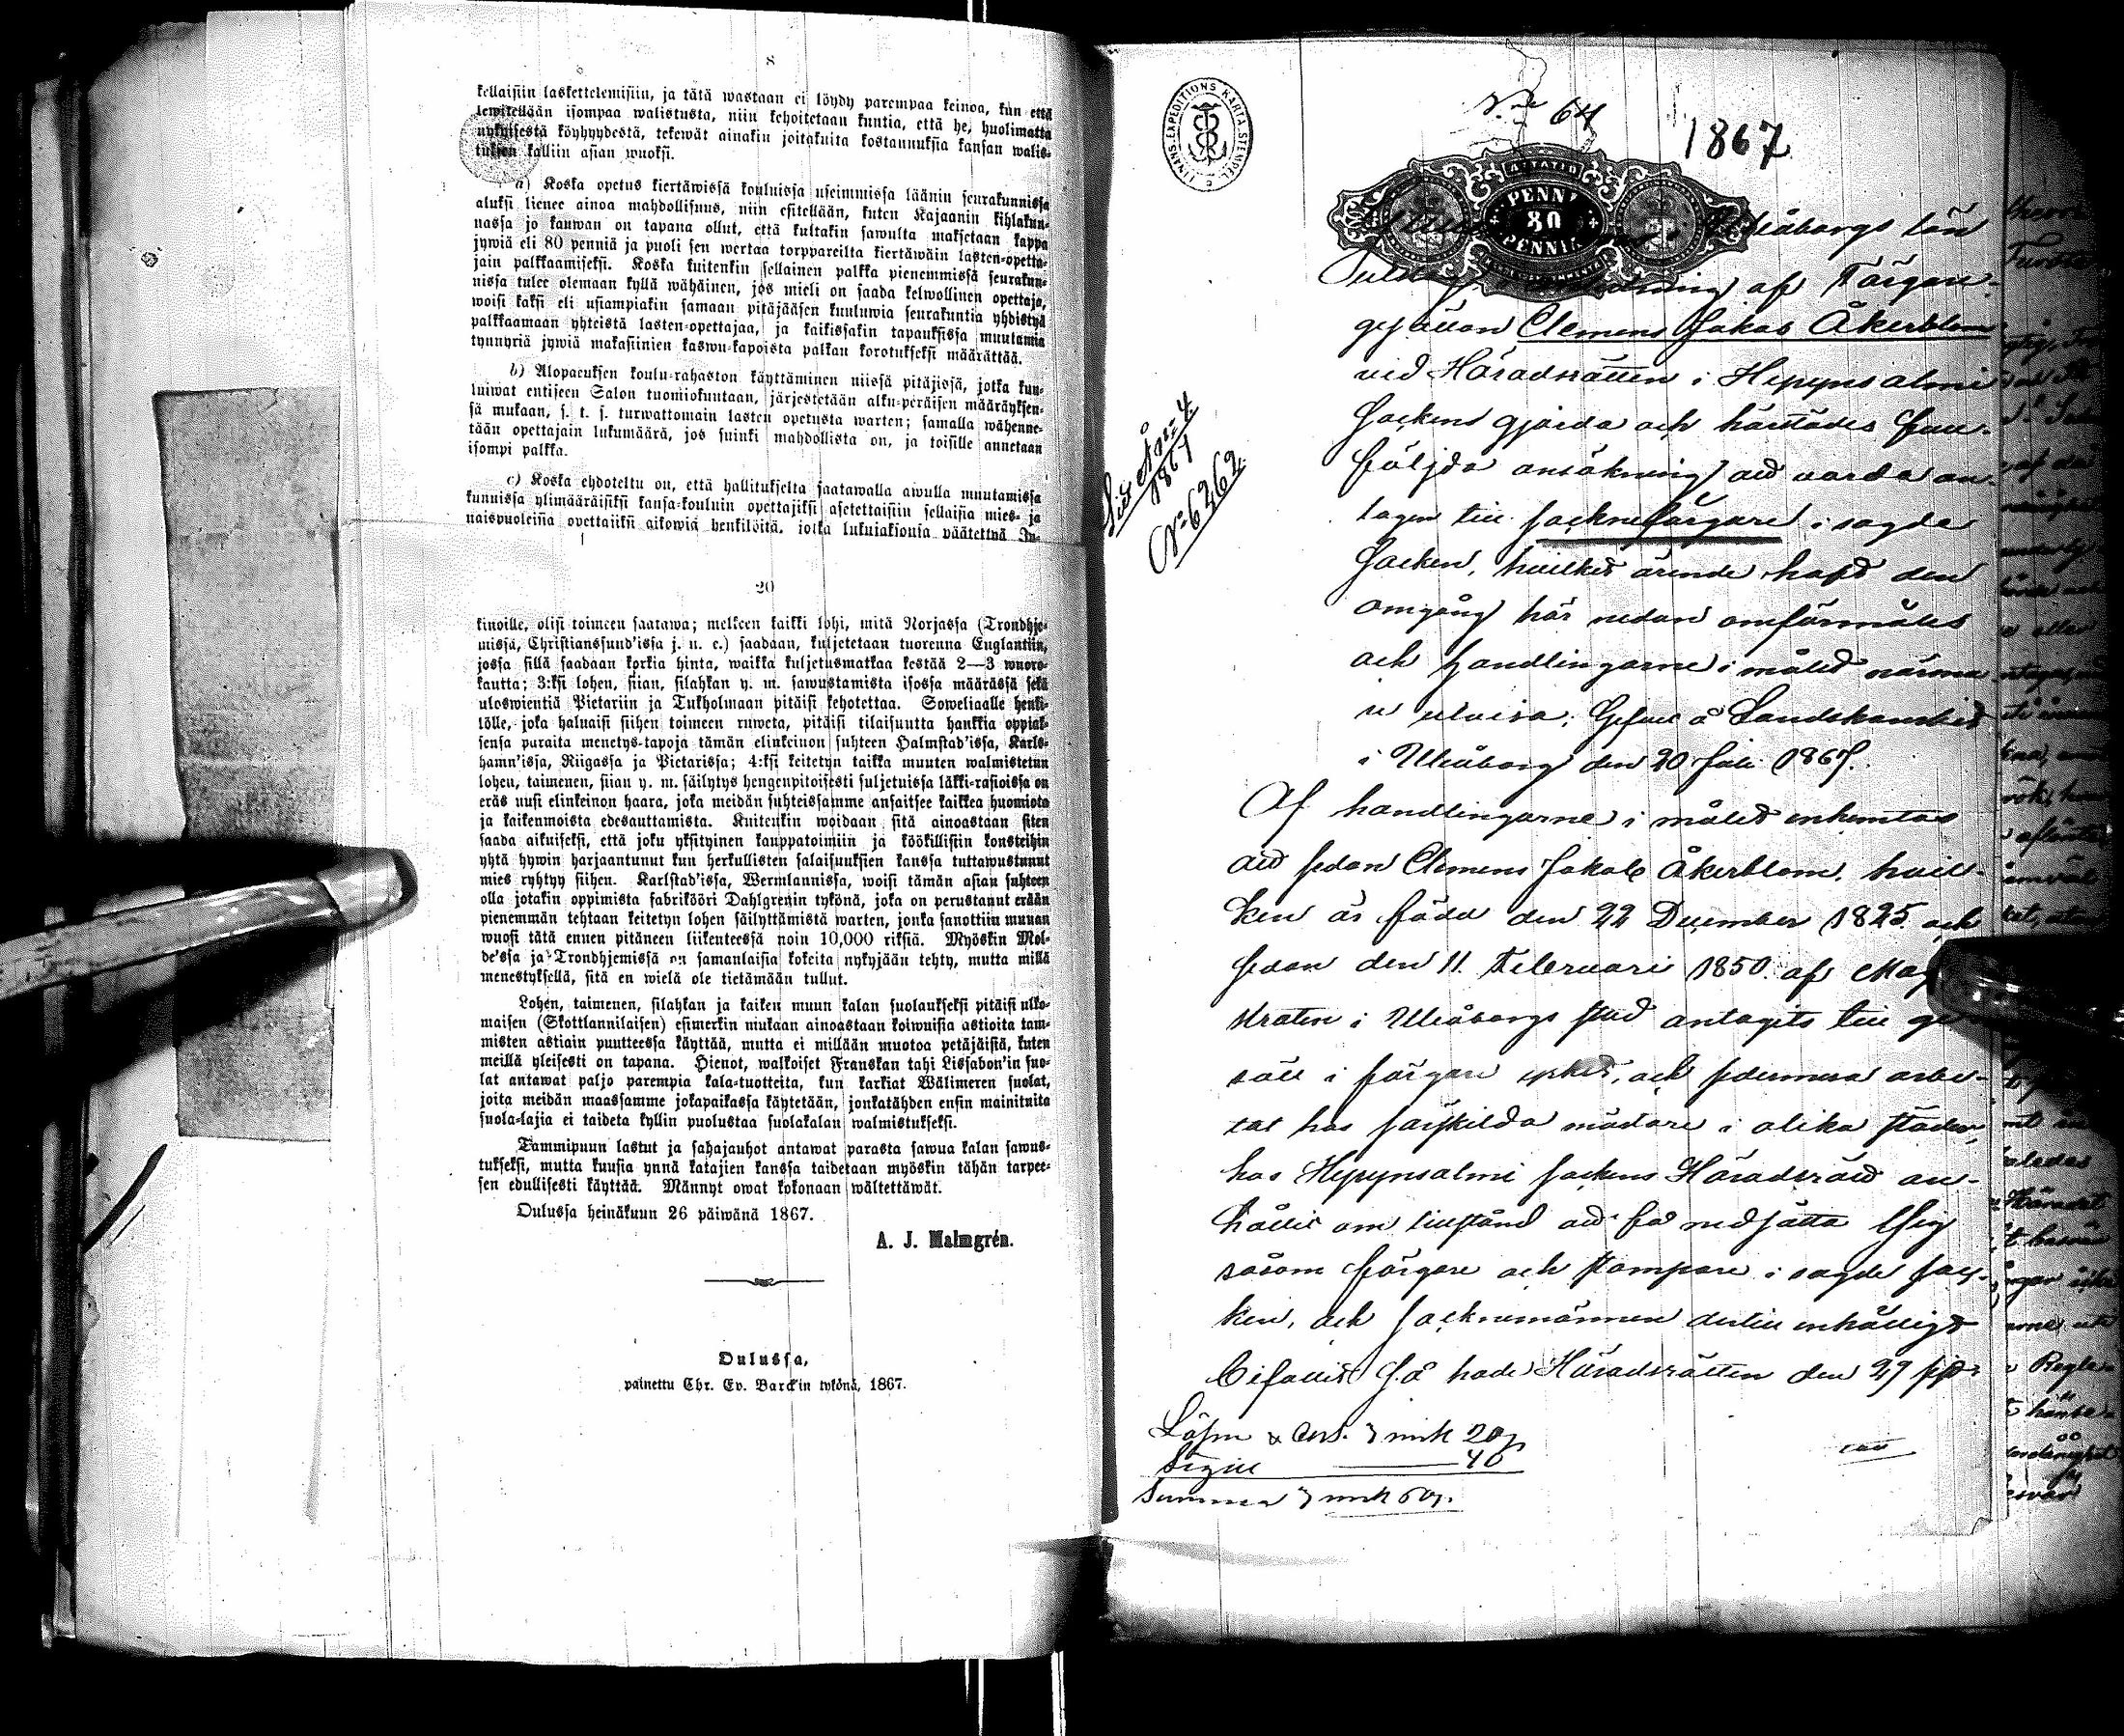 8
kellaisiin laskettelemisiin, ja tätä wastaan ei löydy parempaa keinoa, kun että
lewitellään isompaa walistusta, niin kehoitetaan kuntia, että he, huolimatta
nykyisestä köyhyydestä, tekewät ainakin joitakuita kostannuksia kansan walis-
tuksen kalliin asian wuoksi.
a) Koska opetus kiertäwissä kouluissa useimmissa läänin seurakunnissa
aluksi lienee ainoa mahdollisuus, niin esitellään, kuten Kajaanin kihlakun-
nassa jo kauwan on tapana ollut, että kultakin sawulta maksetaan kappa
jywiä eli 80 penniä ja puoli sen wertaa torppareilta kiertäwäin lasten-opetta-
jain palkkaamiseksi. Koska kuitenkin sellainen palkka pienemmissä seurakun-
nissa tulee olemaan kyllä wähäinen, jos mieli on saada kelwollinen opettaja,
woisi kaksi eli usiampiakin samaan pitäjääsen kuuluwia seurakuntia yhdistyä
palkkaamaan yhteistä lasten-opettajaa, ja kaikissakin tapauksissa muutamia
tynnyriä jywiä makasiinien kaswu-kapoista palkan korotukseksi määrättää.
b) Alopaeuksen koulu-rahaston käyttäminen niissä pitäjissä, jotka kuu-
luiwat entiseen Salon tuomiokuntaan, järjestetään alku-peräisen määräyksen-
sä mukaan, s. t. s. turwattomain lasten opetusta warten; samalla wähenne-
tään opettajain lukumäärä, jos suinki mahdollista on, ja toisille annetaan
isompi palkka.
c) Koska ehdoteltu on, että hallitukselta saatawalla awulla muutamissa
kunnissa ylimääräisiksi kansa-kouluin opettajiksi asetettaisiin sellaisia mies- ja
naispuoleisia opettajiksi aikowia henkilöitä, jotka lukujaksonsa päätettyä Jy-
20
kinoille, olisi toimeen saatawa; melkeen kaikki lohi, mitä Norjassa (Trondhje-
missä, Christianssund'issa j. n. e.) saadaan, kuljetetaan tuorenna Englantiin,
jossa sillä saadaan korkia hinta, waikka kuljetusmatkaa kestää 2—3 wuoro-
kautta; 3:ksi lohen, siian, silahkan y. m. sawustamista isossa määrässä sekä
uloswientiä Pietariin ja Tukholmaan pitäisi kehotettaa. Soweliaalle henki-
lölle, joka haluaisi siihen toimeen ruweta, pitäisi tilaisuutta hankkia oppiak-
sensa paraita menetys-tapoja tämän elinkeinon suhteen Halmstad'issa, Karls-
hamn'issa, Riigassa ja Pietarissa; 4:ksi keitetyn taikka muuten walmistetun
lohen, taimenen, siian y. m. säilytys hengenpitoisesti suljetuissa läkki-rasioissa on
eräs uusi elinkeinon haara, joka meidän suhteissamme ansaitsee kaikkea huomiota
ja kaikenmoista edesauttamista. Kuitenkin woidaan sitä ainoastaan siten
saada aikuiseksi, että joku yksityinen kauppatoimiin ja köökillisiin konsteihin
yhtä hywin harjaantunut kun herkullisten salaisuuksien kanssa tuttawustunut
mies ryhtyy siihen. Karlstad'issa, Wermlannissa, woisi tämän asian suhteen
olla jotakin oppimista fabriköori Dahlgrenin tykönä, joka on perustanut erään
pienemmän tehtaan keitetyn lohen säilyttämistä warten, jonka sanottiin munan
wuosi tätä ennen pitäneen liikenteessä noin 10,000 riksiä. Myöskin Mol-
de'ssa ja Trondhjemissä on samanlaisia kokeita nykyjään tehty, mutta millä
menestyksellä, sitä en wielä ole tietämään tullut.
Lohen, taimenen, silahkan ja kaiken muun kalan suolaukseksi pitäisi ulko-
maisen (Skottlannilaisen) esimerkin mukaan ainoastaan koiwuisia astioita tam-
misten astiain puutteessa käyttää, mutta ei millään muotoa petäjäisiä, kuten
meillä yleisesti on tapana. Hienot, walkoiset Franskan tahi Lissabon'in suo-
lat antawat paljo parempia kala-tuotteita, kun karkiat Wälimeren suolat,
joita meidän maassamme jokapaikassa käytetään, jonkatähden ensin mainituita
suola-lajia ei taideta kyllin puolustaa suolakalan walmistukseksi.
Tammipuun lastut ja sahajauhot antawat parasta sawua kalan sawus-
tukseksi, mutta kuusia ynnä katajien kanssa taidetaan myöskin tähän tarpee-
sen edullisesti käyttää. Männyt owat kokonaan wältettäwät.
Oulussa heinäkuun 26 päiwänä 1867.
A. J. Malmgrén.
Oulussa,
painettu Chr. Ev. Barckin tykönä, 1867.
FINANS-EXPEDITIONS KARTA STEMPEL
No 64
1867
PENNI
80
PENNIÄ
Uleåborgs län
af Färgare-
gesällen Clemens Jakob Åkerblom
vid Häradsrätten i Hyrynsalmi
Socken gjorda och härstädes full-
följda ansökning att varda an-
tagen till sockne färgare i sagde
Socken, hvilket ärende haft den
omgång här nedan omförmäles
och handlingarne i målet närma-
re utvisa; Gifvet å Landskansliet
i Uleåborg den 20 Juli 1867.
Af handlingarne i målet inhemtas
att sedan Clemens Jakob Åkerblom, hvil-
ken är född den 22 December 1825 och
sedan den 11 Februari 1850 af Mag
straten i Uleåborgs stad antagits till ge
säll i färgare yrket, och sedermera arbe-
tat hos särskilda mästare i olika städer,
hos Hyrynsalmi sockens Häradsrätt an-
hållit om tillstånd att få nedsätta sig
såsom färgare och stampare i sagde soc-
ken, och socknemännen dertill enhälligt
bifallit så hade Häradsrätten den 27 sist-
No 6362
1867
Lösen & Chrs. 3 mrk 20 p
Sigill 40
Summa 3 mrk 60 p.